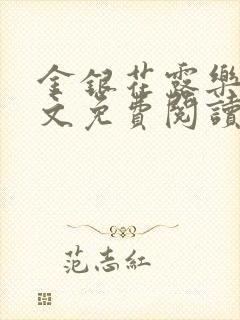 金銀花露樂
文免費閱讀
范志紅